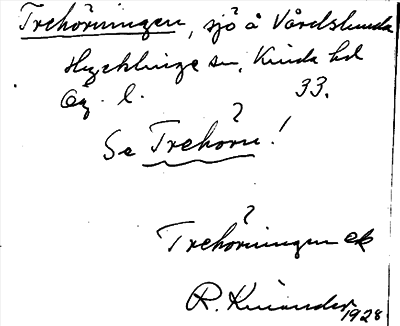 Trehörningen, sjö å Vårdslunda
Hycklinge sn, Kinda hd
Ög. l. 33.
?
Se Trehörn!
?
Trehörningen ek
R. Kinander 1928